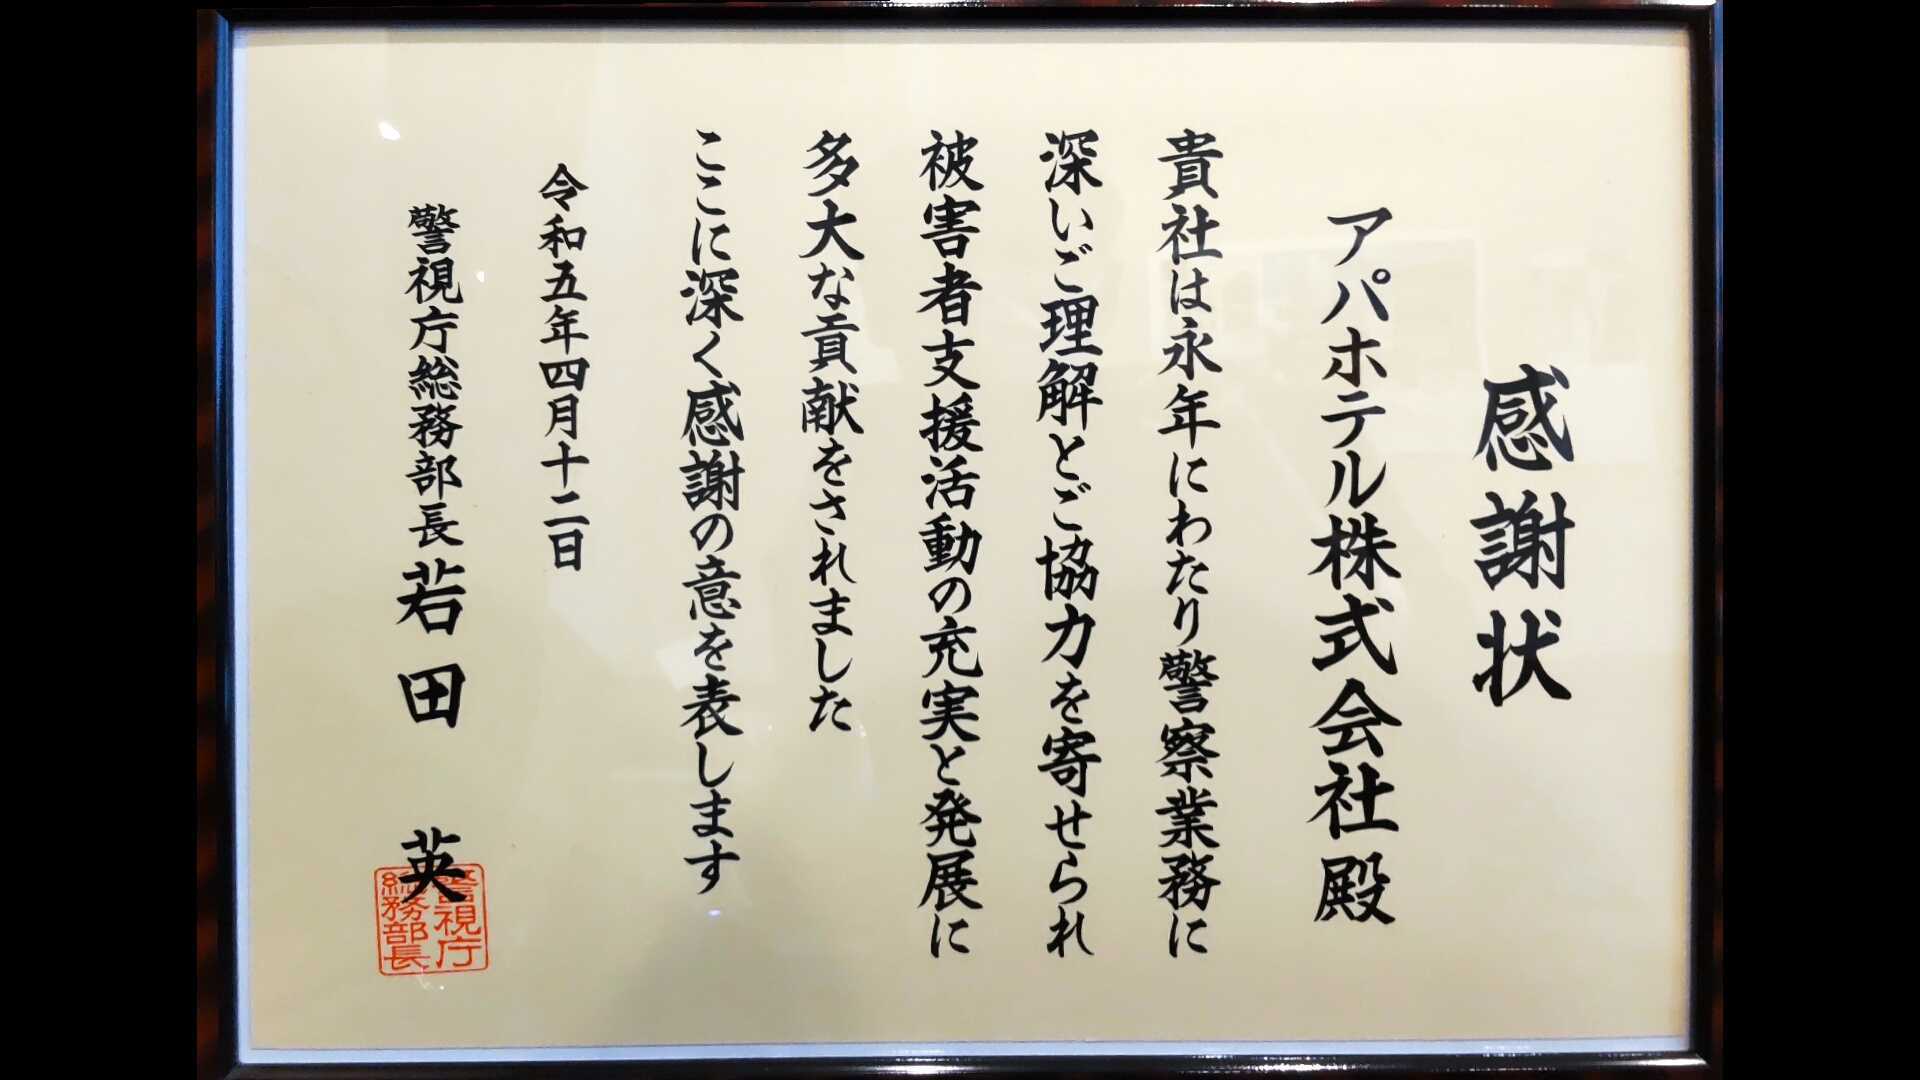 感謝状
アパホテル株式会社殿
貴社は永年にわたり警察業務に
深いご理解とご協力を寄せられ
被害者支援活動の充実と発展に
多大な貢献をされました
ここに深く感謝の意を表します
令和五年四月十二日
警視庁総務部長 若田 英
警視庁
総務部長